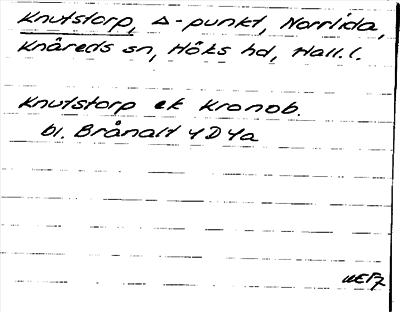 Knutstorp, Δ-punkt, Norrlida,
Knäreds sn, Höks hd, Hall.l.
Knutstorp ek Kronob.
bl. Brånalt 4D4a